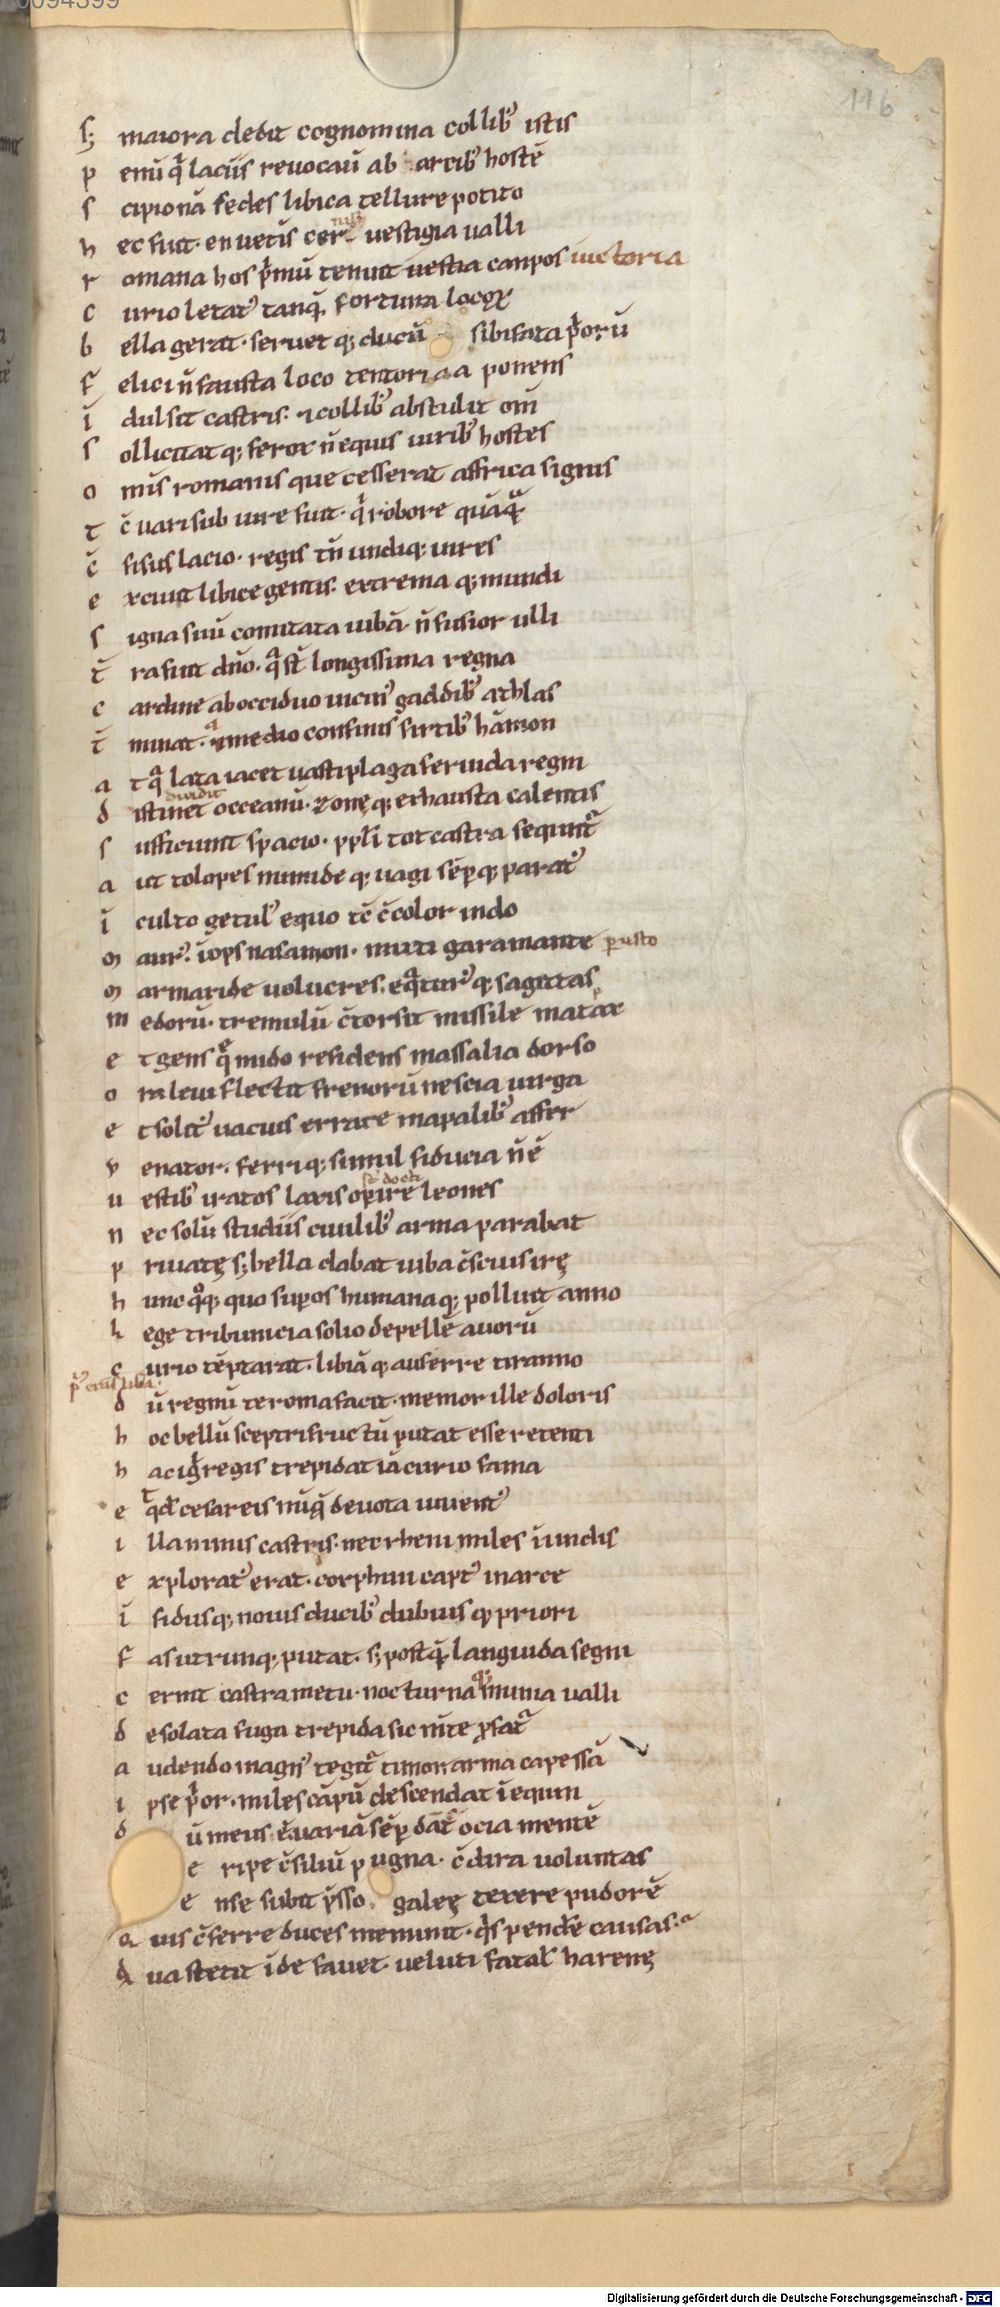 116
s; maiora dedit cognomina collib; istis
p enũ q̃ laciis reuocauit ab arcib; hostẽ
s cipionã sedes libica tellure potito
h ec fuit. en uetis cer vestigia ualli
r omana hos p̃mũ tenuit campos uictoria
c urio letat᷒ tanq̃ fortuna locoꝝ
b ella gerat. seruet q; ducũ sibi fata p̃orũ
f elici ñ fausta loco tentoria ponens
ĩ dulsit castris. ⁊ collib; abstulit om̃
s ollicitat q; ferox ñ equis uirib; hostes
o mis romanis que cesserat affrica signis
t c̃ uari sub iure fuit. q̃ robore quãq̃
c̃ fisus lacio. regis tñ undiq; uires
e xciuit libice gentis. extrema q; mundi
s igna suũ comitata iubã ñ fusior ulli
t̃ ra fuit dño. q̃ st̃ longissima regna
c ardine ab occiduo uicin᷒ gaddib; athlas
t̃ minat. a medio confinis sirtib; hãmon
a t q̃ lata iacet uasti plaga feruida regni
d istinet occeanũ. zonę q; exhausta calentis
diuidit
s ufficiunt spacio. ppl̃i tot castra sequnt᷑
a ut tolopes numide q; uagi sẽp q; parat᷒
ĩ culto getul᷒ equo tc̃ c̃color indo
m aur᷒. iops nasamon. mixti garamante pusto
m armaride uolucres. eq̃tur᷒ q; sagittas
m edorũ. tremulũ c̃torsit missile matax
e t gens q̃ nudo residens massalia dorso
o ra leui flectit frenorũ nescia uirga
e t solit᷒ uacuis errare mapalib; affer
v enator. ferri q; simul fiducia ñ ẽ
u estib; iratos laxis opire leones
n ec solũ studiis ciuilib; arma parabat
p riuatę s; bella dabat iuba c̃scius irę
h unc q̊q; quo supos humana q; polluit anno
l ege tribunicia solio depellẽ auorũ
c urio tẽptarat. libiã q; auferre tiranno
d ũ regnũ te roma facit. memor ille doloris
h oc bellũ sceptri fructũ putat esse retenti
h ac ig̃ regis trepidat iã curio fama
e t qd̃ cesareis nũq̃ deuota iuuent᷒
i lla nimis castris. nec rheni miles ĩ undis
e xplorat᷒ erat. corphini capt᷒ in arce
ĩ fidusq; nouis ducib; dubiusq; priori
f as utrunq; putat. s; postq̃ languida segni
c ernit castra metu. nocturna q; munia ualli
d esolata fuga trepida sic m̃te p̃fat᷑
a udendo magn᷒ tegit᷑ timor. arma capessã
i pse p̃or. miles cãpũ descendat ĩ equm
d ũ meus ẽ. uariã sẽp dãt ocia mentẽ
e ripe c̃siliũ pugna. c̃ dira voluntas
e nse subit p̃sso. galeę texere pudorẽ
q uis c̃ferre duces meminit. q̃s pendẽ causas
q ua stetit ĩde fauet. veluti fatal᷒ harenę
Digitalisierung gefördert durch die Deutsche Forschungsgemeinschaft - DFG